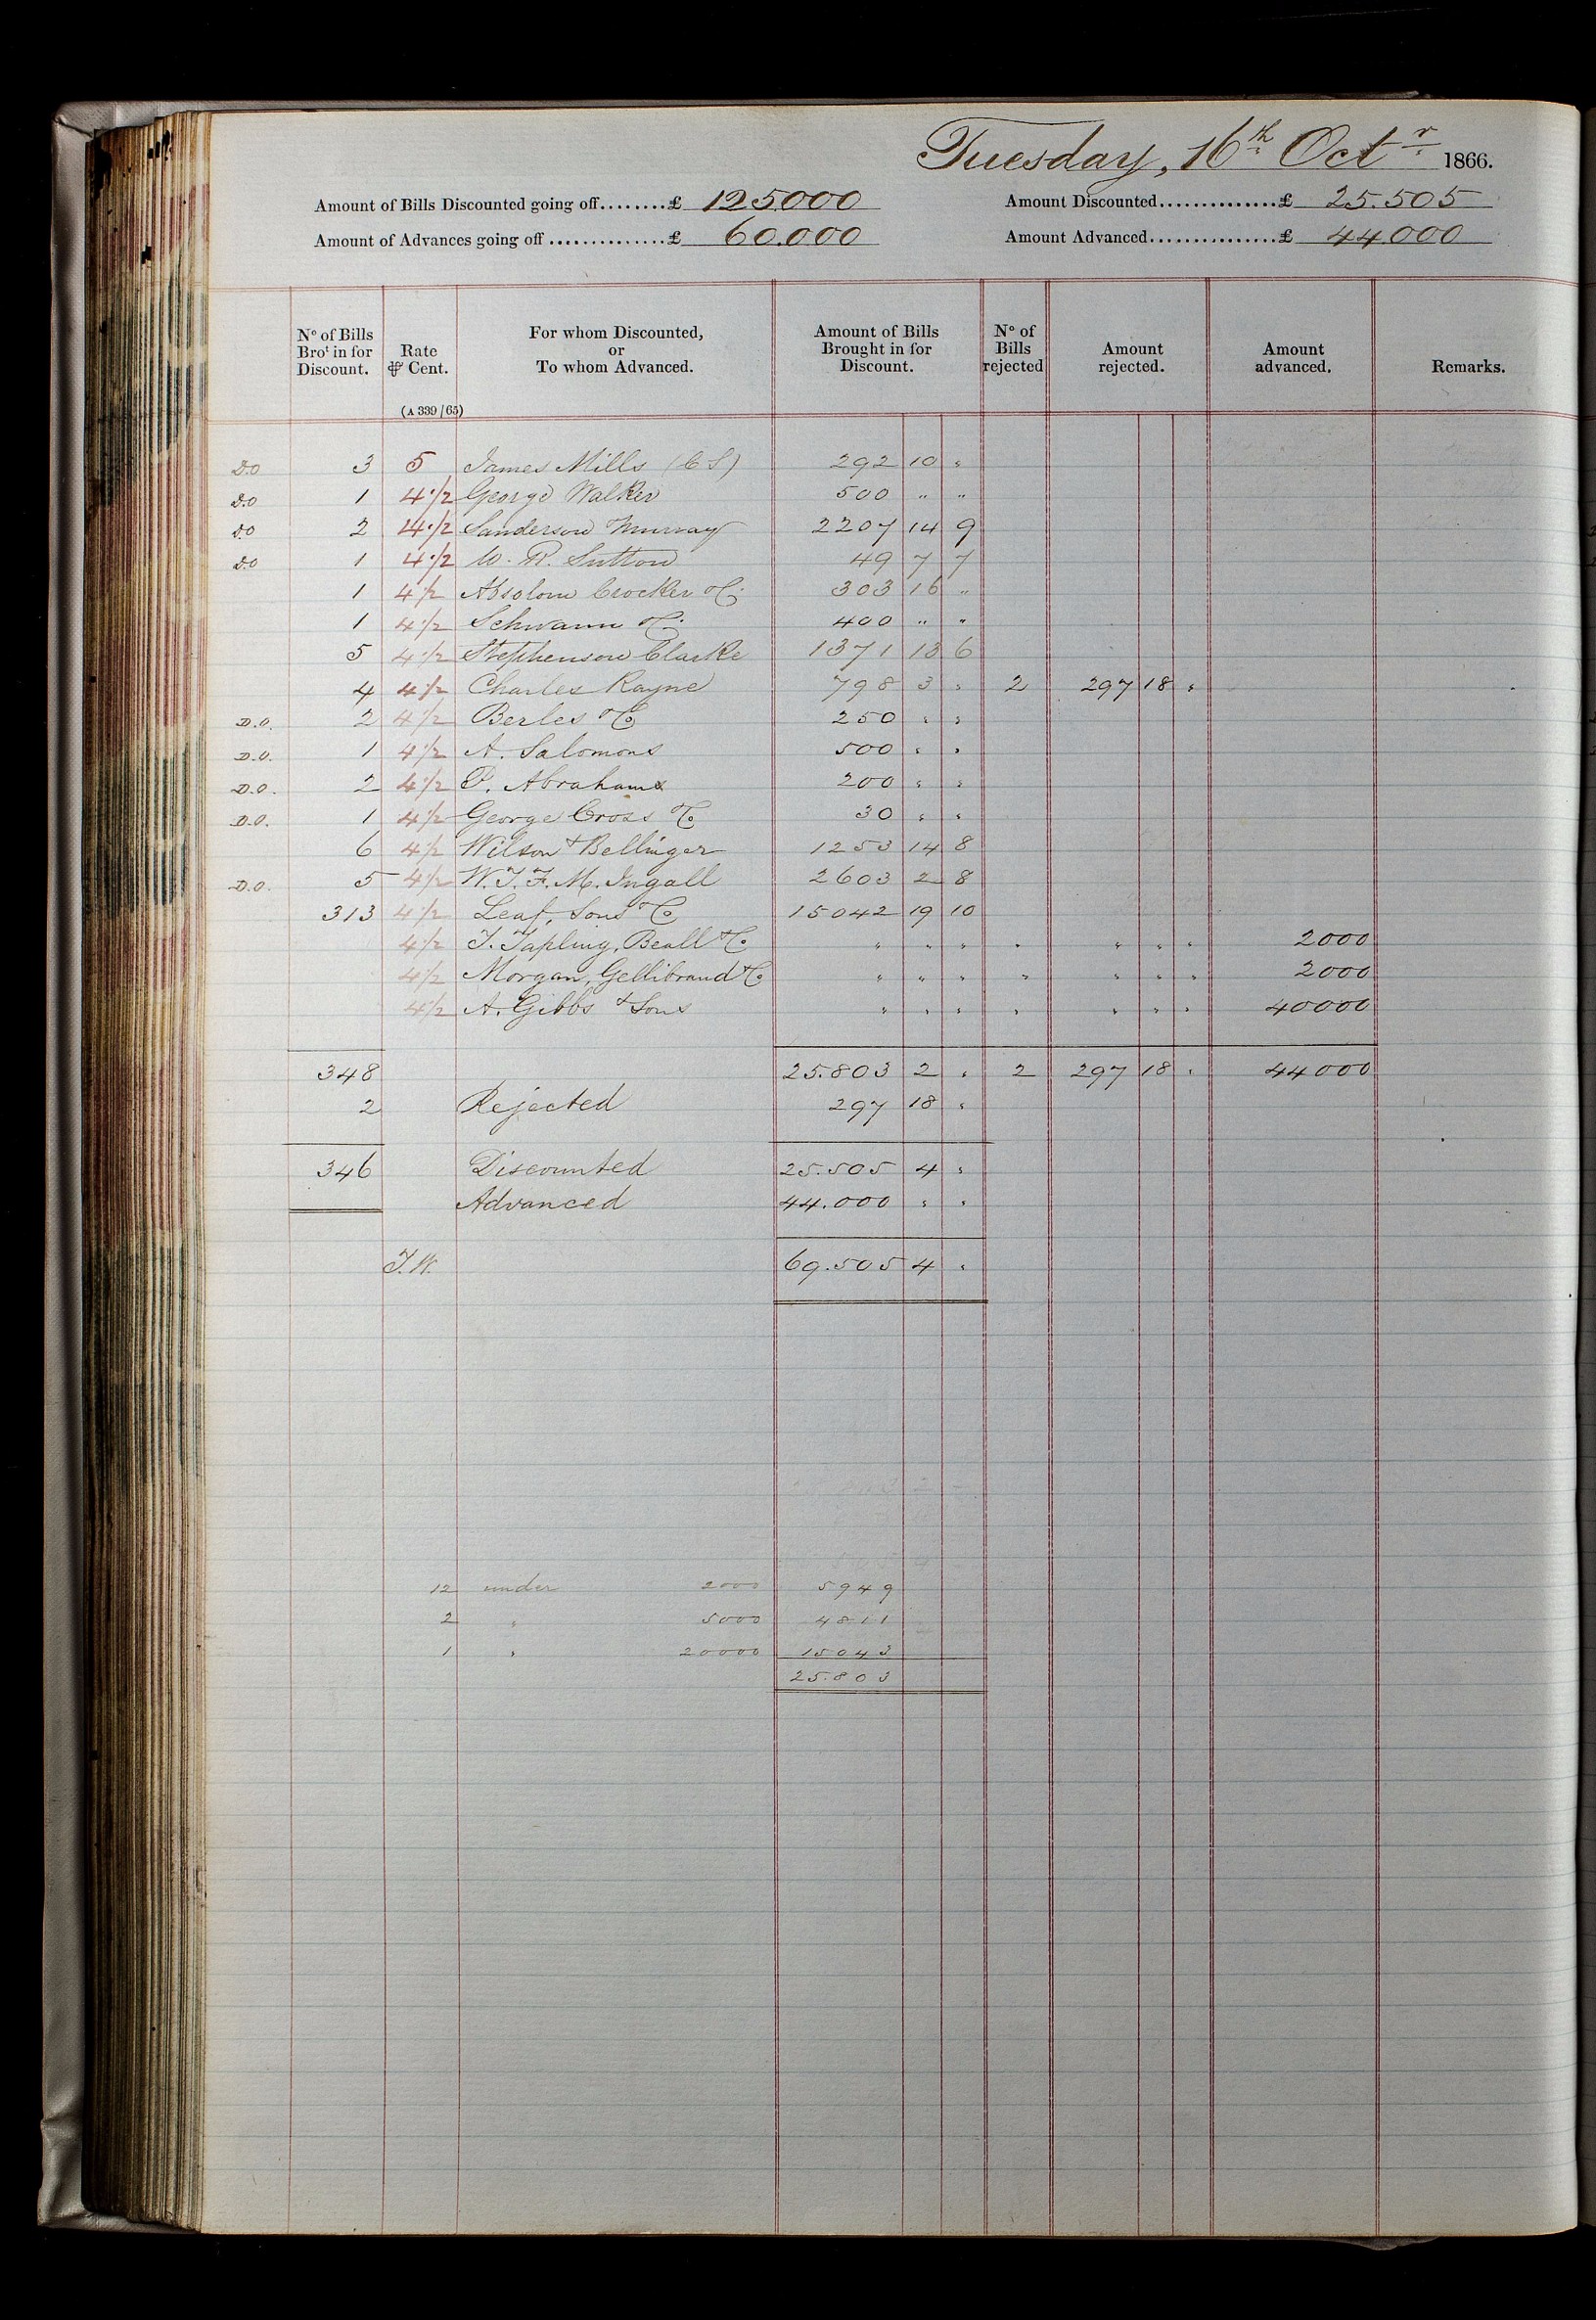 Tuesday, 16th Octr 1866.
Amount of Bills Discounted going off........£ 125.000 Amount Discounted..............£ 25.505
Amount of Advances going off ..............£ 60.000 Amount Advanced...............£ 44.000
No of Bills Brot in for Discount. Rate ⅌ Cent. (A 339/65) For whom Discounted, or To whom Advanced. Amount of Bills Brought in for Discount. No of Bills rejected Amount rejected. Amount advanced. Remarks.
D.O 3 5 James Mills (C S) 292 10 "
D.O 1 4 1/2 George Walker 500 " "
D.O 2 4 1/2 Sanderson Murray 2207 14 9
D.O 1 4 1/2 W. R. Sutton 49 7 7
1 4 1/2 Absolom Crocker & Co 303 16 "
1 4 1/2 Schwann & Co 400 " "
5 4 1/2 Stephenson Clarke 1371 13 6
4 4 1/2 Charles Rayne 798 3 " 2 297 18 "
D.O. 2 4 1/2 Berles & Co 250 " "
D.O. 1 4 1/2 A. Salomons 500 " "
D.O. 2 4 1/2 P. Abrahams 200 " "
D.O. 1 4 1/2 George Cross & Co 30 " "
6 4 1/2 Wilson & Bellinger 1253 14 8
D.O. 5 4 1/2 W. T. F. M. Ingall 2603 2 8
313 4 1/2 Leaf, Sons & Co 15042 19 10
4 1/2 T. Tapling, Beall & Co " " " " " " " 2000
4 1/2 Morgan, Gellibrand & Co " " " " " " " 2000
4 1/2 A. Gibbs & Sons " " " " " " " 40000
348 25.803 2 " 2 297 18 " 44000
2 Rejected 297 18 "
346 Discounted 25.505 4 "
Advanced 44.000 " "
T.W. 69.505 4 "
12 under 2000 5949
2 " 5000 4811
1 " 20000 15043
25.803